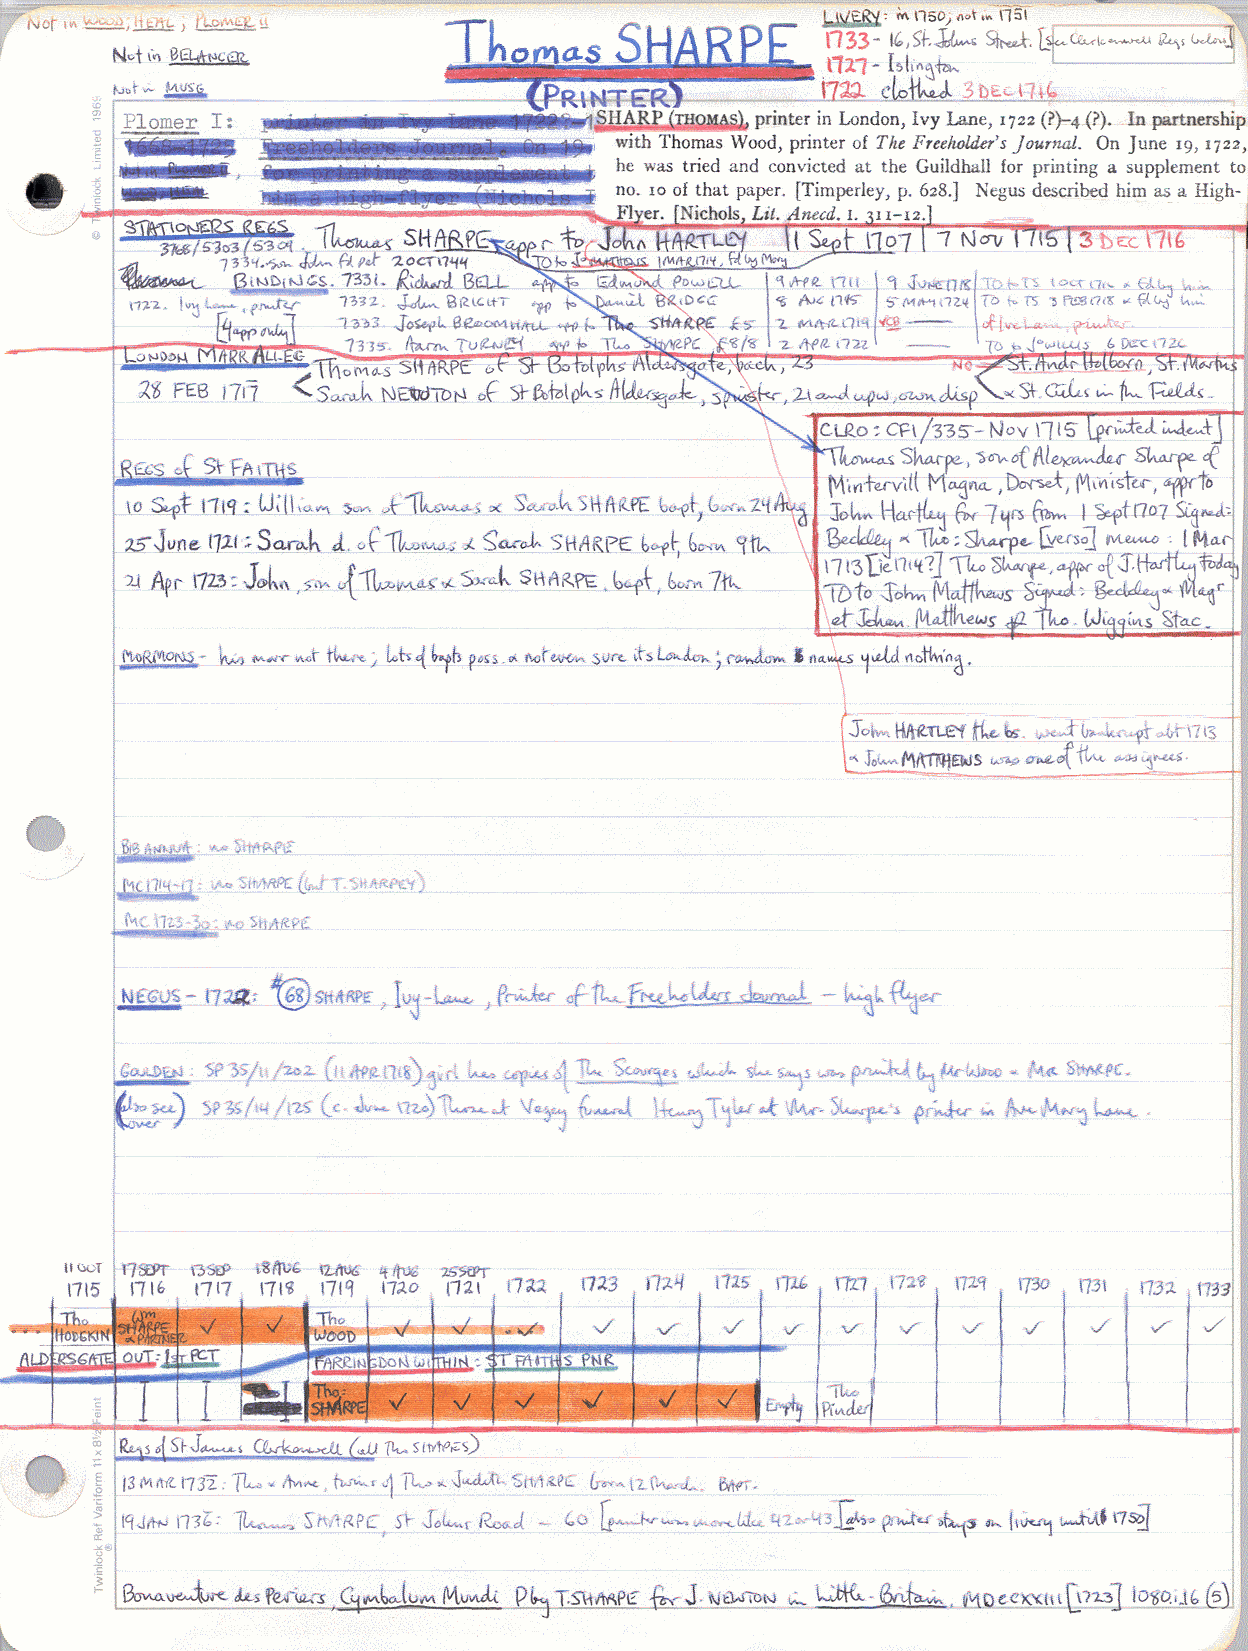 Not in WOOD; HEAL; PLOMER II
Not in BELANGER
Not in MUSG
Thomas SHARPE
(PRINTER)
LIVERY: in 1750; not in 1751
1733 - 16, St. Johns Street. [see Clerkenwell Regs below]
1727 - Islington
1722 clothed 3 DEC 1716
Plomer I:
SHARP (THOMAS), printer in London, Ivy Lane, 1722 (?)–4 (?). In partnership
with Thomas Wood, printer of The Freeholder's Journal. On June 19, 1722,
he was tried and convicted at the Guildhall for printing a supplement to
no. 10 of that paper. [Timperley, p. 628.] Negus described him as a High-
Flyer. [Nichols, Lit. Anecd. I. 311-12.]
STATIONERS REGS
3768/5303/5309
Thomas SHARPE appr to John HARTLEY | 1 Sept 1707 | 7 Nov 1715 | 3 DEC 1716
TO to Jo MATTHEWS 1 MAR 1714, Fd by Mary
7334. son John fd pat 2 OCT 1744
BINDINGS. 7331. Richard BELL app to Edmund POWELL | 9 APR 1711 | 9 JUNE 1718 | TO to TS 1 OCT 1716 & fd by him
1722. Ivy Lane, printer
7332. John BRIGHT app to Daniel BRIDGE | 8 AUG 1715 | 5 MAY 1724 | TO to TS 3 FEB 1718 & fd by him
[4 app only]
7333. Joseph BROOMHALL app to Tho SHARPE £5 | 2 MAR 1719 | | of Ivy Lane, printer
7335. Aaron TURNEY app to Tho SHARPE £8/8 | 2 APR 1722 | | TO to 6 DEC 1726
LONDON MARR ALLEG
28 FEB 1717
Thomas SHARPE of St Botolphs Aldersgate, bach, 23
Sarah NEWTON of St Botolphs Aldersgate, spinster, 21 and upw, own disp
NO St. Andr Holborn, St. Martins
& St. Giles in the Fields.
CLRO: CF1/335 - Nov 1715 [printed indent]
Thomas Sharpe, son of Alexander Sharpe of
Mintervill Magna, Dorset, Minister, appr to
John Hartley for 7 yrs from 1 Sept 1707 Signed:
Beckley & Tho: Sharpe [verso] memo: 1 Mar
1713 [ie 1714?] Tho Sharpe, appr of J. Hartley today
TO to John Matthews Signed: Beckley & Magr
et Johan. Matthews Tho. Wiggins Stac.
REGS of St FAITHS
10 Sept 1719: William son of Thomas & Sarah SHARPE bapt, born 24 Aug
25 June 1721: Sarah d. of Thomas & Sarah SHARPE bapt, born 9th
21 Apr 1723: John, son of Thomas & Sarah SHARPE, bapt, born 7th
MORMONS - his marr not there; lots of bapts poss. & not even sure its London; random names yield nothing.
John HARTLEY the bs. went bankrupt abt 1713
& John MATTHEWS was one of the assignees.
BIB ANNUA: no SHARPE
MC 1714-17: no SHARPE (but T. SHARPEY)
MC 1723-30: no SHARPE
NEGUS - 1722: #68 SHARPE, Ivy-Lane, Printer of the Freeholders Journal - high flyer
GOULDEN: SP 35/11/202 (11 APR 1718) girl has copies of The Scourges which she says was printed by Mr Wood & Mr SHARPE.
(also see over) SP 35/14/125 (c. June 1720) Those at Vezey funeral Henry Tyler at Mr. Sharpe's printer in Ave Mary Lane.
11 OCT 17 SEPT 13 SEP 18 AUG 12 AUG 4 AUG 25 SEPT
1715 1716 1717 1718 1719 1720 1721 1722 1723 1724 1725 1726 1727 1728 1729 1730 1731 1732 1733
Tho HODGKIN Wm SHARPE & PARTNER ✓ ✓ Tho WOOD ✓ ✓ ✓ ✓ ✓ ✓ ✓ ✓ ✓ ✓ ✓ ✓ ✓ ✓
ALDERSGATE OUT: 1st PCT FARRINGDON WITHIN: ST FAITHS PNR
Tho: SHARPE ✓ ✓ ✓ ✓ ✓ ✓ Empty Tho Pinder
Regs of St James Clerkenwell (all Tho SHARPES)
13 MAR 1732: Tho & Anne, twins of Tho & Judith SHARPE born 12 March. BAPT.
19 JAN 1736: Thomas SHARPE, St Johns Road - 60 [printer was more like 42 or 43] [also printer stays on livery until 1750]
Bonaventure des Periers, Cymbalum Mundi P by T. SHARPE for J. NEWTON in Little-Britain, MDCCXXIII [1723] 1080.i.16 (5)
© Twinlock Limited 1969
Twinlock Ref Variform 11 x 8½ Faint